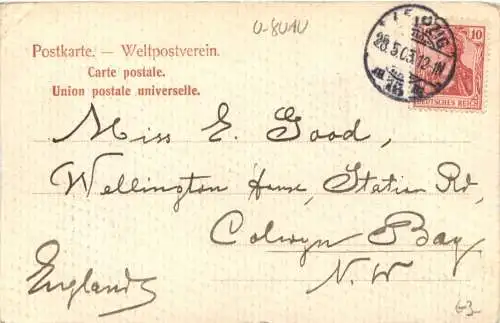 Postkarte. — Weltpostverein.
Carte postale.
Union postale universelle.
LEIPZIG
10
DEUTSCHES REICH
Miss E. Good,
Wellington House, Station Rd,
Colwyn Bay
N.W
England